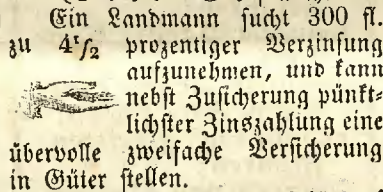 Ein Landmann sucht 300 fl.
zu 4 1/2 prozentiger Verzinsung
aufzunehmen, und kann
nebst Zusicherung pünkt⸗
lichster Zinszahlung eine
übervolle zweifache Versicherung
in Güter stellen.